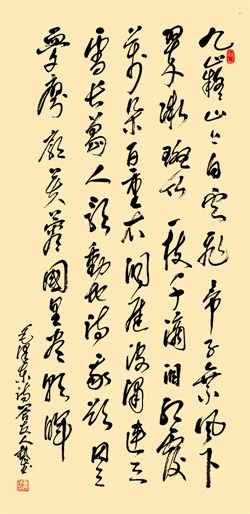 九嶷山上白雲飛帝子乘風下
翠微斑竹一枝千滴淚紅霞
萬朵百重衣洞庭波涌連天
雪長島人歌動地詩我欲因之
夢寥廓芙蓉國里盡朝暉
毛澤東詩答友人